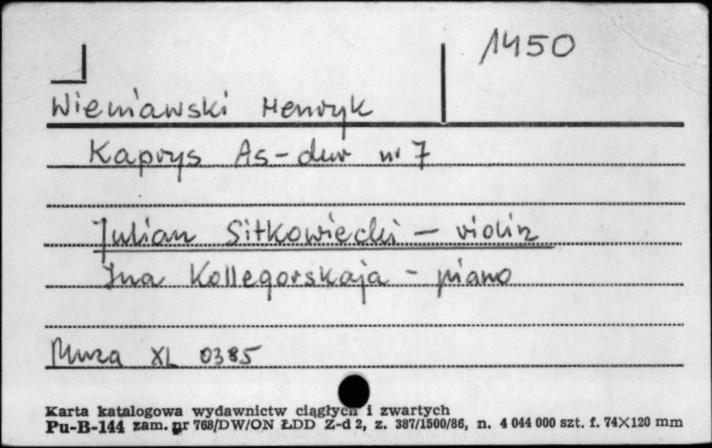 1450
Wieniawski Henryk
Kaprys As-dur nr 7
Julian Sitkowiecki – violin
Ina Kollegorskaja - piano
Muza XL 0385
Karta katalogowa wydawnictw ciągłych i zwartych
Pu-B-144 zam. nr 768/DW/ON ŁDD Z-d 2, z. 387/1500/86, n. 4 044 000 szt. f. 74×120 mm